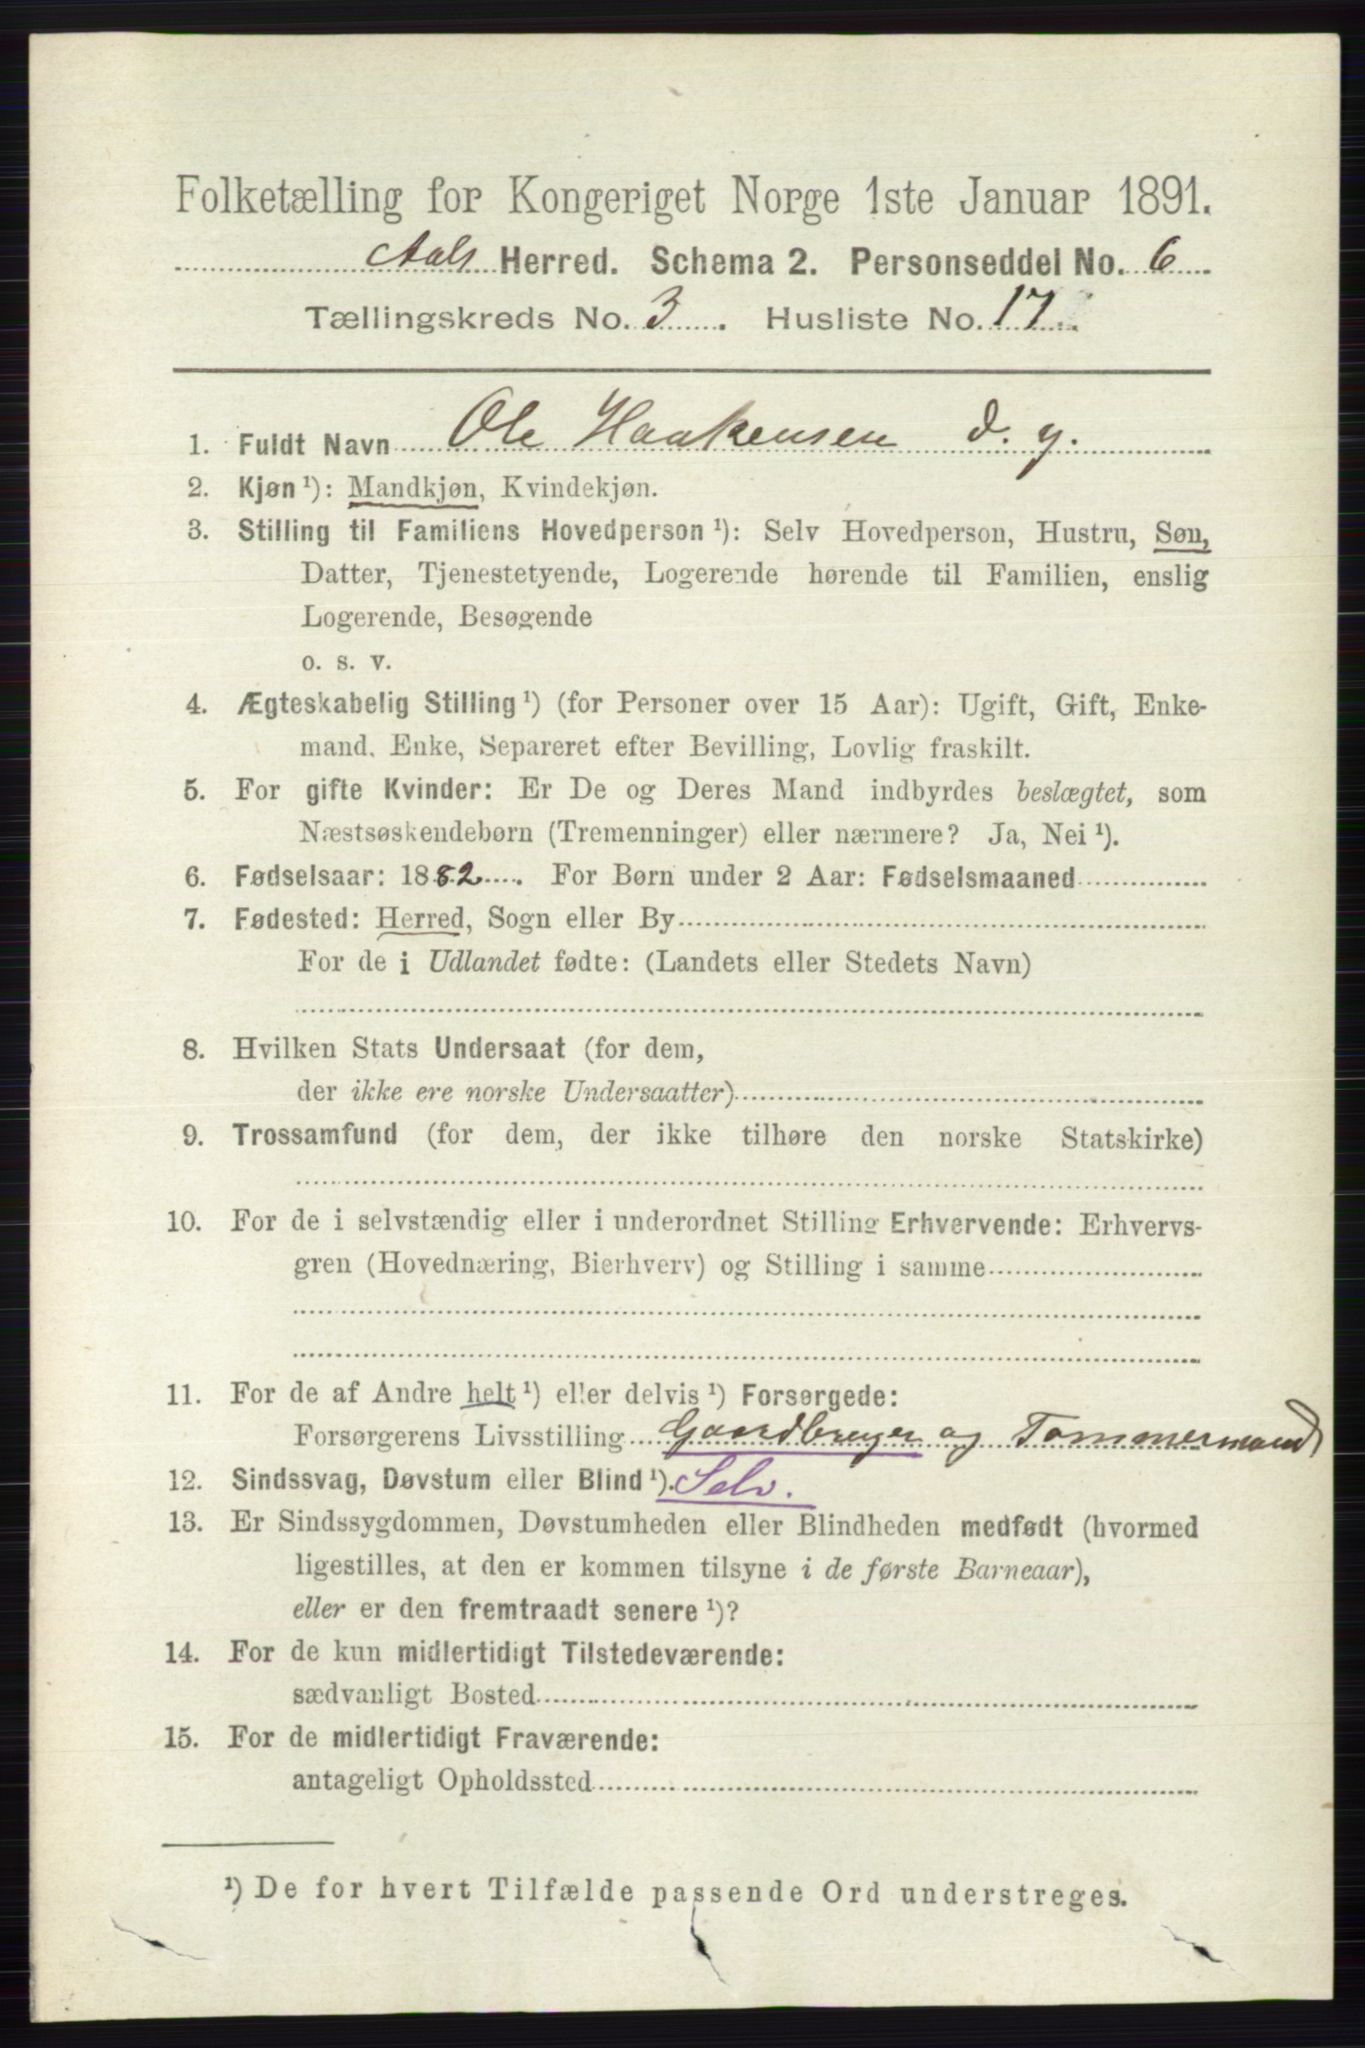 Folketælling for Kongeriget Norge 1ste Januar 1891.
Aals Herred. Schema 2. Personseddel No. 6
Tællingskreds No. 3. Husliste No. 17.
1. Fuldt Navn Ole Haakensen d. y.
2. Kjøn ¹): Mandkjøn, Kvindekjøn.
3. Stilling til Familiens Hovedperson ¹): Selv Hovedperson, Hustru, Søn,
Datter, Tjenestetyende, Logerende hørende til Familien, enslig
Logerende, Besøgende
o. s. v.
4. Ægteskabelig Stilling ¹) (for Personer over 15 Aar): Ugift, Gift, Enke-
mand, Enke, Separeret efter Bevilling, Lovlig fraskilt.
5. For gifte Kvinder: Er De og Deres Mand indbyrdes beslægtet, som
Næstsøskendebørn (Tremenninger) eller nærmere? Ja, Nei ¹).
6. Fødselsaar: 1882. For Børn under 2 Aar: Fødselsmaaned
7. Fødested: Herred, Sogn eller By
For de i Udlandet fødte: (Landets eller Stedets Navn)
8. Hvilken Stats Undersaat (for dem,
der ikke ere norske Undersaatter)
9. Trossamfund (for dem, der ikke tilhøre den norske Statskirke)
10. For de i selvstændig eller i underordnet Stilling Erhvervende: Erhvervs-
gren (Hovednæring, Bierhverv) og Stilling i samme
11. For de af Andre helt ¹) eller delvis ¹) Forsørgede:
Forsørgerens Livsstilling Gaardbruger og Tømmermand
12. Sindssvag, Døvstum eller Blind ¹). Selv.
13. Er Sindssygdommen, Døvstumheden eller Blindheden medfødt (hvormed
ligestilles, at den er kommen tilsyne i de første Barneaar),
eller er den fremtraadt senere ¹)?
14. For de kun midlertidigt Tilstedeværende:
sædvanligt Bosted
15. For de midlertidigt Fraværende:
antageligt Opholdssted
¹) De for hvert Tilfælde passende Ord understreges.